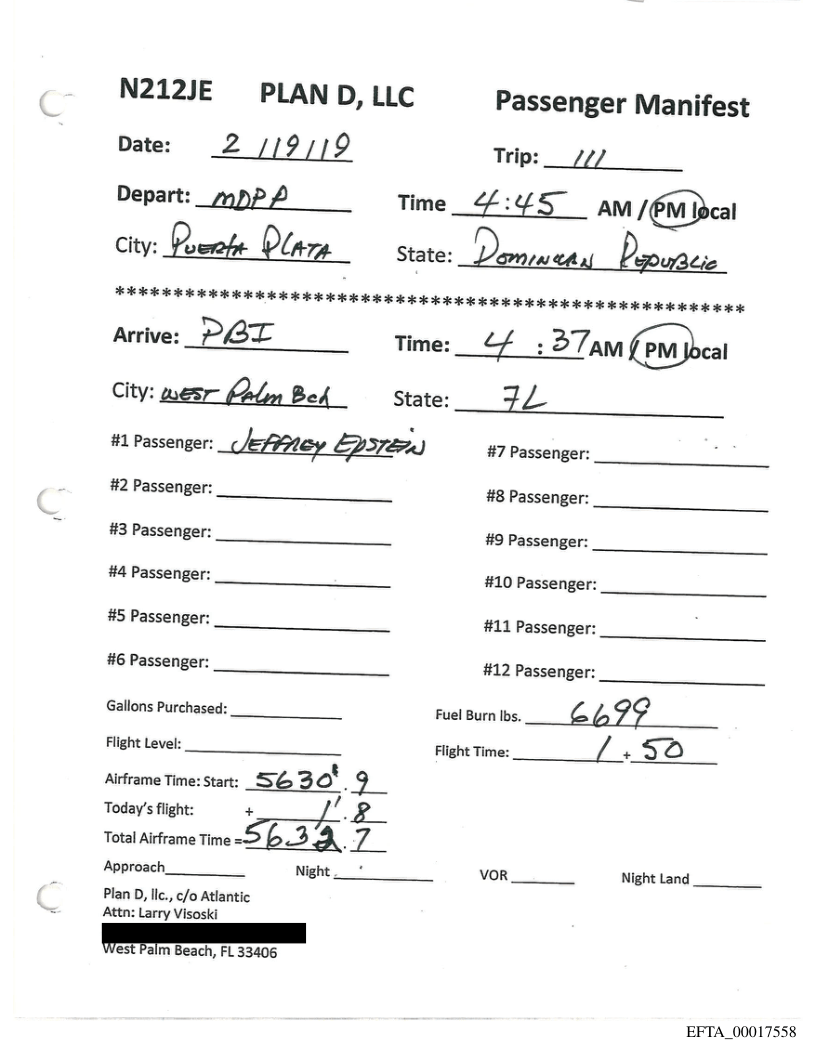 N212JE PLAN D, LLC Passenger Manifest
Date: 2 /19/19 Trip: 111
Depart: MDPP Time 4:45 AM / PM local
City: PUERTA PLATA State: DOMINICAN REPUBLIC
******************************************************
Arrive: PBI Time: 4 : 37 AM / PM local
City: WEST PALM BCH State: FL
#1 Passenger: JEFFREY EPSTEIN #7 Passenger:
#2 Passenger: #8 Passenger:
#3 Passenger: #9 Passenger:
#4 Passenger: #10 Passenger:
#5 Passenger: #11 Passenger:
#6 Passenger: #12 Passenger:
Gallons Purchased: Fuel Burn lbs. 6699
Flight Level: Flight Time: 1 + 50
Airframe Time: Start: 5630.9
Today's flight: + 1.8
Total Airframe Time = 5632.7
Approach Night VOR Night Land
Plan D, llc., c/o Atlantic
Attn: Larry Visoski
West Palm Beach, FL 33406
EFTA_00017558